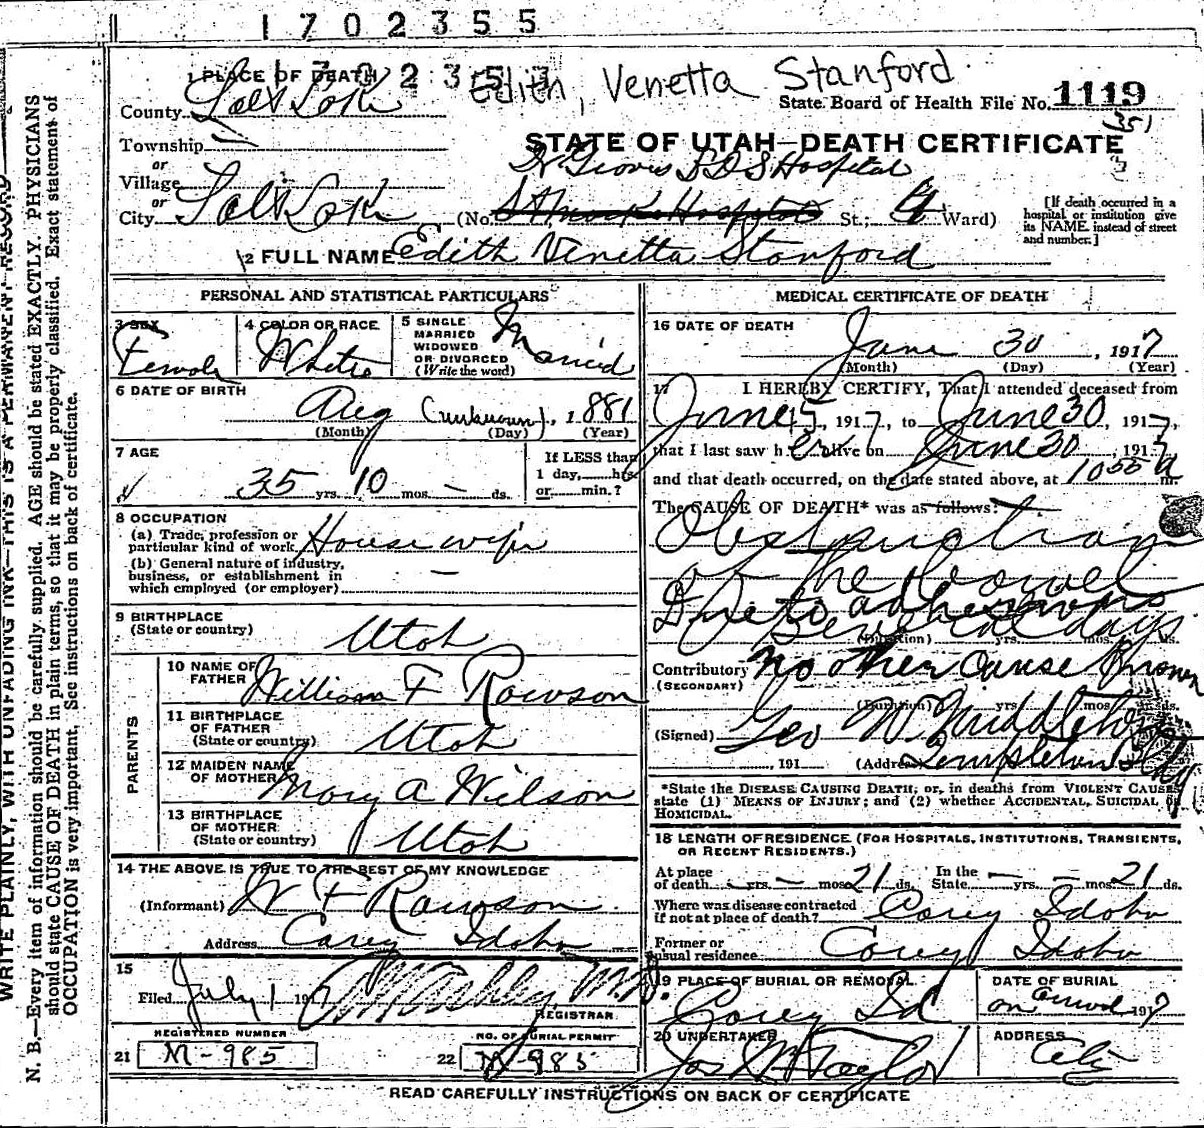 1702355
1 PLACE OF DEATH
Edith, Venetta Stanford
County Salt Lake
State Board of Health File No. 1119
351
Township
STATE OF UTAH—DEATH CERTIFICATE
or
Village
Dr Groves L D S Hospital
or
City Salt Lake (No. St Marks Hospital St.; 4 Ward)
[If death occurred in a
hospital or institution give
its NAME instead of street
and number.]
2 FULL NAME Edith Venetta Stanford
PERSONAL AND STATISTICAL PARTICULARS
3 SEX
Female
4 COLOR OR RACE
White
5 SINGLE
MARRIED
WIDOWED
OR DIVORCED
(Write the word)
Married
6 DATE OF BIRTH
Aug (unknown), 1881
(Month) (Day) (Year)
7 AGE
35 yrs. 10 mos. — ds.
If LESS than
1 day, hrs.
or min.?
8 OCCUPATION
(a) Trade, profession or
particular kind of work House wife
(b) General nature of industry,
business, or establishment in
which employed (or employer) —
9 BIRTHPLACE
(State or country) Utah
PARENTS
10 NAME OF
FATHER William F Rawson
11 BIRTHPLACE
OF FATHER
(State or country) Utah
12 MAIDEN NAME
OF MOTHER Mary A Wilson
13 BIRTHPLACE
OF MOTHER
(State or country) Utah
14 THE ABOVE IS TRUE TO THE BEST OF MY KNOWLEDGE
(Informant) W F Rawson
Address Carey Idaho
15
Filed July 1 1917 M.D.
REGISTRAR
REGISTERED NUMBER
21 M-985
NO. OF BURIAL PERMIT
22 M-985
MEDICAL CERTIFICATE OF DEATH
16 DATE OF DEATH
June 30, 1917
(Month) (Day) (Year)
17 I HEREBY CERTIFY, That I attended deceased from
June 15, 1917, to June 30, 1917,
that I last saw her alive on June 30, 1917
and that death occurred, on the date stated above, at 10 55 a m.
The CAUSE OF DEATH* was as follows:
Obstruction
of the bowel
Due to adhesions
Several days
(Duration) yrs. mos. ds.
Contributory No other cause known
(SECONDARY)
(Duration) yrs. mos. ds.
(Signed) Geo W Middleton
, 191 (Address) Templeton Bldg
*State the DISEASE CAUSING DEATH; or, in deaths from VIOLENT CAUSES,
state (1) MEANS OF INJURY; and (2) whether ACCIDENTAL, SUICIDAL or
HOMICIDAL.
18 LENGTH OF RESIDENCE (FOR HOSPITALS, INSTITUTIONS, TRANSIENTS,
OR RECENT RESIDENTS.)
At place
of death — yrs. — mos. 21 ds.
In the
State — yrs. — mos. 21 ds.
Where was disease contracted
if not at place of death? Carey Idaho
Former or
usual residence Carey Idaho
19 PLACE OF BURIAL OR REMOVAL
Carey Id
DATE OF BURIAL
on arrival 1917
20 UNDERTAKER
Jos Wm Taylor
ADDRESS
City
READ CAREFULLY INSTRUCTIONS ON BACK OF CERTIFICATE
WRITE PLAINLY, WITH UNFADING INK—THIS IS A PERMANENT RECORD
N. B.—Every item of information should be carefully supplied. AGE should be stated EXACTLY. PHYSICIANS
should state CAUSE OF DEATH in plain terms, so that it may be properly classified. Exact statement of
OCCUPATION is very important. See instructions on back of certificate.